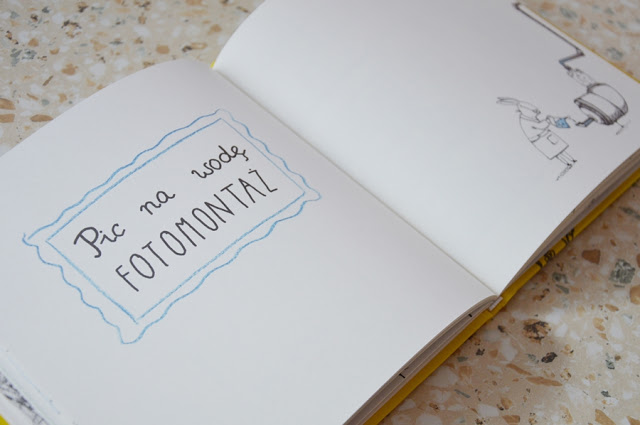 Pic na wodę
FOTOMONTAŻ